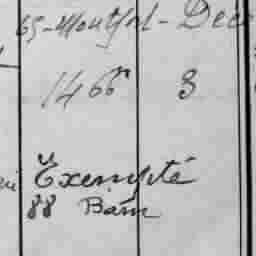 65-Montfort-Déce
1466 3
Exempté
88 Bam